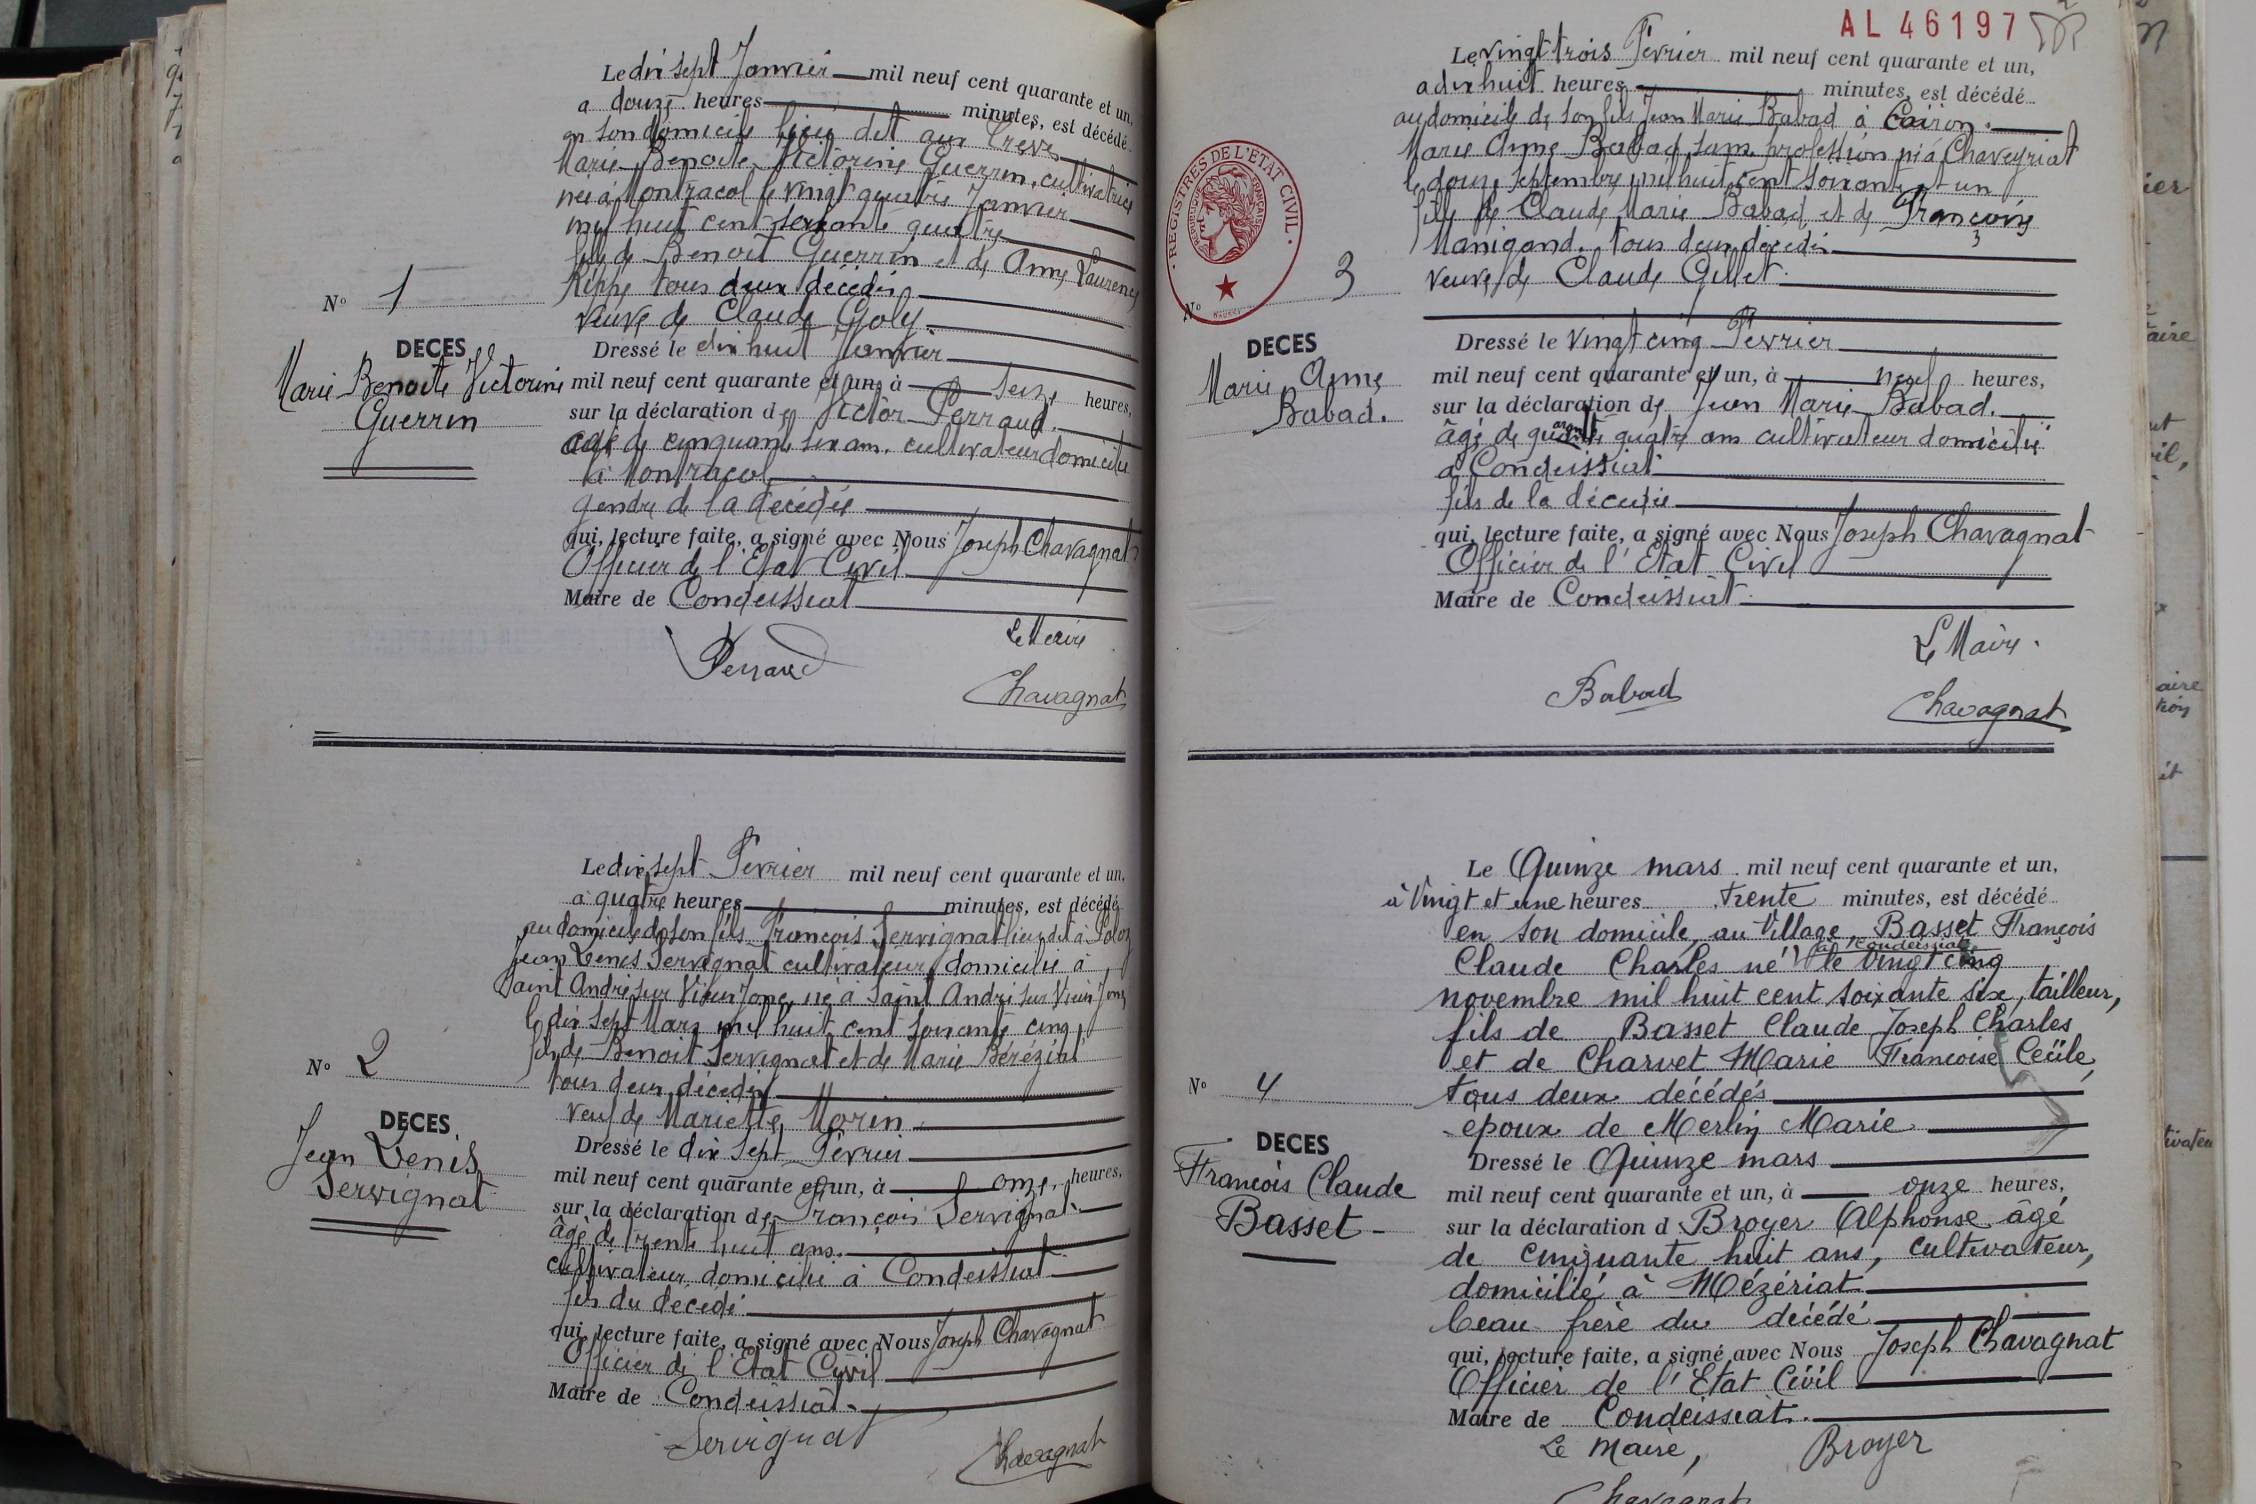 Le dix sept Janvier mil neuf cent quarante et un,
a douze heures minutes, est décédé
en son domicile lieu dit aux
Marie Benoite Victorine Guerrin, cultivatrice
née à Montracol le vingt quatre Janvier
mil huit cent soixante quatre
fille de Benoit Guerrin et de Anne Laurence
Rippe tous deux décédés
veuve de Claude Goly.
Dressé le dix huit Janvier
mil neuf cent quarante et un, à seize heures,
sur la déclaration de Victor Perraud.
agé de cinquante six ans, cultivateur domicilié
à Montracol
gendre de la décédée
qui, lecture faite, a signé avec Nous Joseph Chavagnat
Officier de l'Etat Civil
Maire de Condeissiat
Le Maire
Perraud
Chavagnat
N° 1
DECES
Marie Benoite Victorine
Guerrin
Le dix sept Février mil neuf cent quarante et un,
à quatre heures minutes, est décédé
au domicile de son fils François Servignat lieu dit à
Jean Denis Servignat cultivateur, domicilié à
Saint André sur Vieux Jonc, né à Saint André sur Vieux Jonc
le dix sept Mars mil huit cent soixante cinq,
fils de Benoit Servignat et de Marie Béréziat
tous deux décédés
veuf de Mariette Morin.
Dressé le dix sept Février
mil neuf cent quarante et un, à onze heures,
sur la déclaration de François Servignat.
âgé de trente huit ans.
cultivateur, domicilié à Condeissiat
fils du décédé
qui, lecture faite, a signé avec Nous Joseph Chavagnat
Officier de l'Etat Civil
Maire de Condeissiat.
Servignat
Chavagnat
N° 2
DECES
Jean Denis
Servignat
AL 46197
Le vingt trois Février mil neuf cent quarante et un,
a dix huit heures minutes, est décédé
au domicile de son fils Jean Marie Babad à Cairon.
Marie Anne Babad, sans profession née à Chaveyriat
le douze septembre mil huit cent soixante et un
fille de Claude Marie Babad et de Françoise
Manigand. tous deux décédés
veuve de Claude Gillet.
Dressé le vingt cinq Février
mil neuf cent quarante et un, à neuf heures,
sur la déclaration de Jean Marie Babad.
âgé de quarante quatre ans cultivateur domicilié
a Condeissiat
fils de la décédée
qui, lecture faite, a signé avec Nous Joseph Chavagnat
Officier de l'Etat Civil
Maire de Condeissiat.
Le Maire.
Babad
Chavagnat
REGISTRES DE L'ETAT CIVIL
REPUBLIQUE FRANÇAISE
N° 3
DECES
Marie Anne
Babad.
Le Quinze mars mil neuf cent quarante et un,
à Vingt et une heures trente minutes, est décédé
en son domicile, au Village, Basset François
à Condeissiat
Claude Charles né le vingt cinq
novembre mil huit cent soixante six, tailleur,
fils de Basset Claude Joseph Charles
et de Charvet Marie Francoise Cecile,
tous deux décédés
epoux de Merlin Marie
Dressé le Quinze mars
mil neuf cent quarante et un, à onze heures,
sur la déclaration d Broyer Alphonse âgé
de cinquante huit ans, cultivateur,
domicilié à Mézériat
beau frère du décédé
qui, lecture faite, a signé avec Nous Joseph Chavagnat
Officier de l'Etat Civil
Maire de Condeissiat.
Le Maire, Broyer
Chavagnat
N° 4
DECES
Francois Claude
Basset